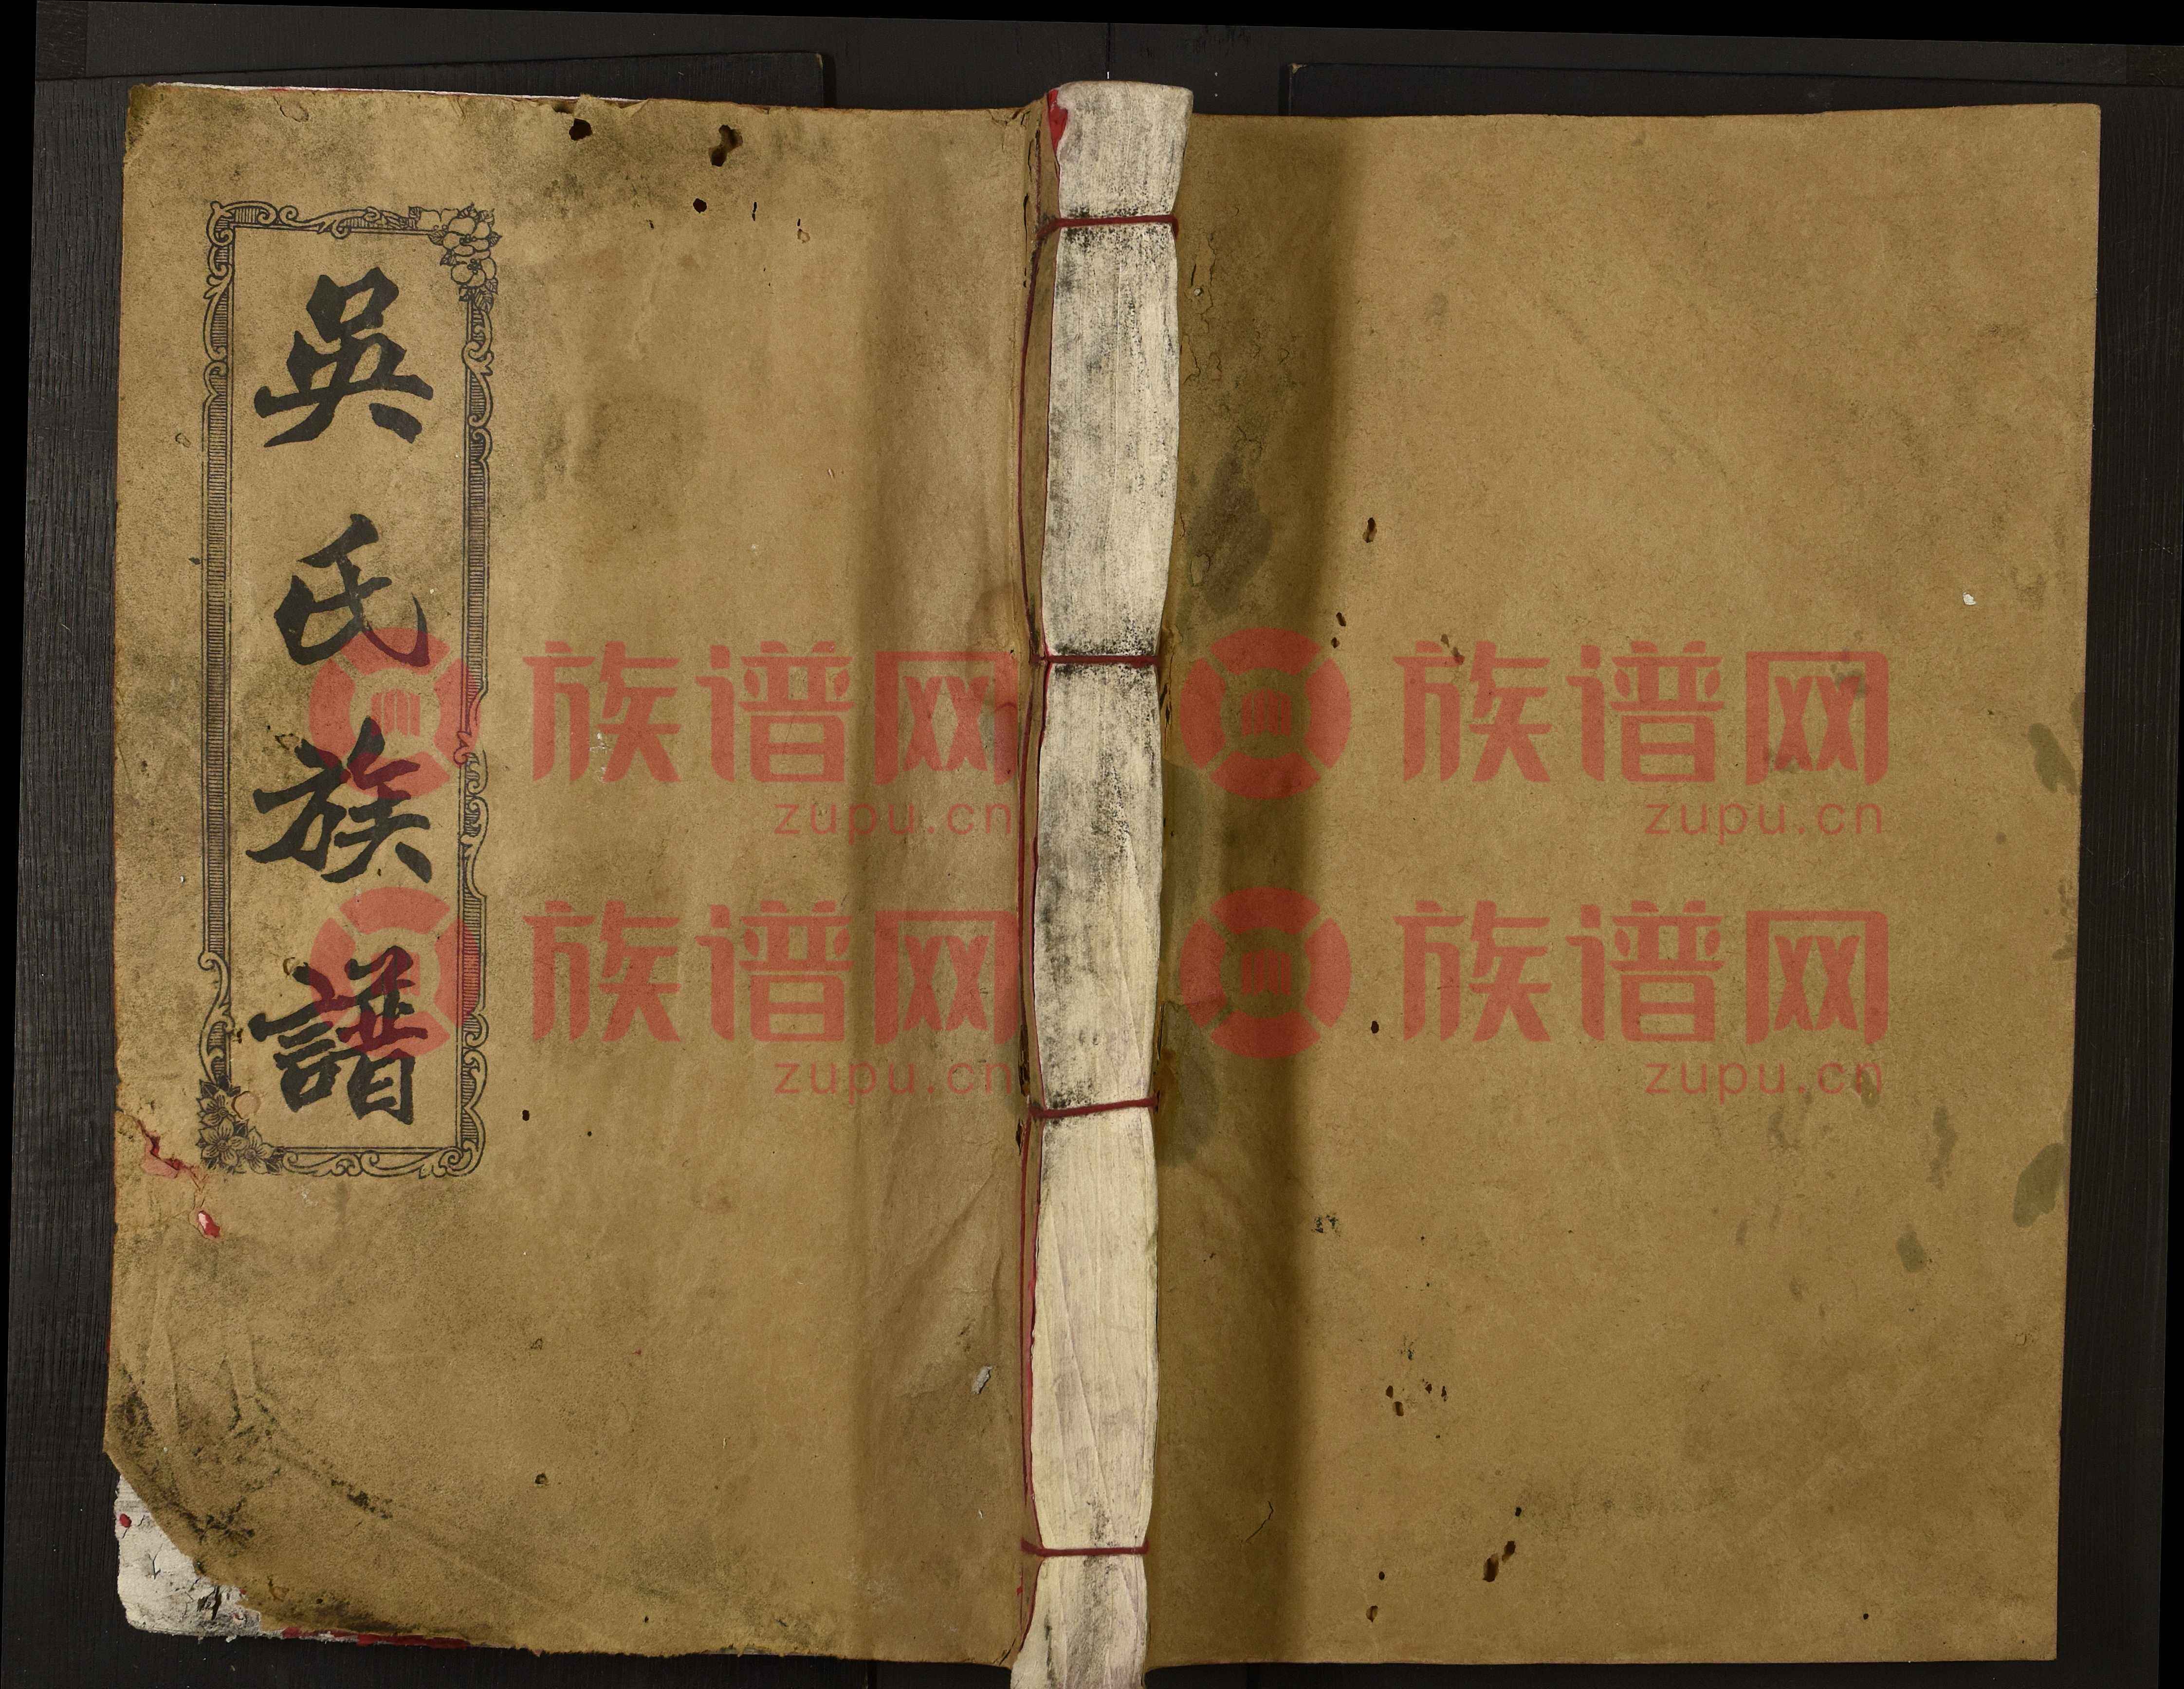 吳氏族譜
族谱网
zupu.cn
族谱网
zupu.cn
族谱网
zupu.cn
族谱网
zupu.cn